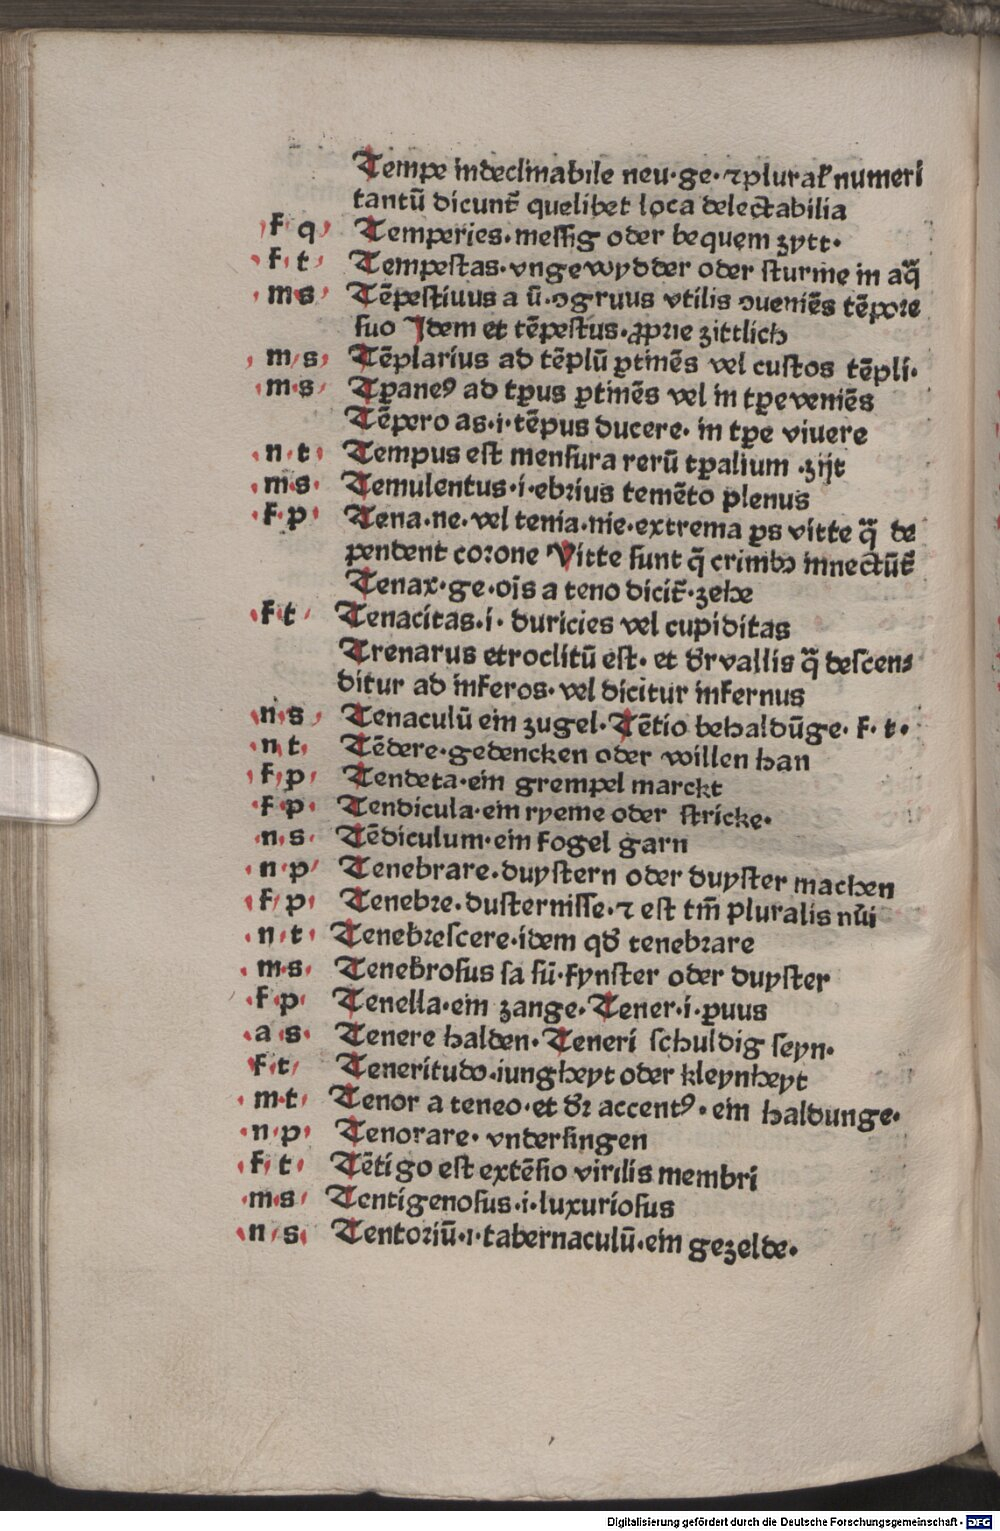 Tempe indeclinabile neu·ge·⁊pluraꝉ numeri
tantū dicunt̄ quelibet loca delectabilia
f q Temperies·messig oder bequem zytt·
f·t Tempestas·vngewydder oder sturme in aq̄
m s Tēpestiuus a ū·ↄgruus vtilis ↄueniēs tēpore
suo Idem et tēpestus·ꝓprie zittlich
m s Tēplarius ad tēplū ꝑtinēs vel custos tēpli·
m·s Tꝑaneꝰ ad tꝑus ꝑtinēs vel in tꝑe veniēs
Tēpero as·i·tēpus ducere·in tꝑe viuere
n·t Tempus est mensura rerū tꝑalium·zijt
m·s Temulentus·i·ebrius temēto plenus
f·p Tena·ne·vel tenia·nie·extrema ꝑs vitte q̄ de
pendent corone Vitte sunt q̄ crinibꝫ innectūt̄
Tenax·ge·oīs a teno dicit̄·zehe
f t Tenacitas·i·duricies vel cupiditas
Trenarus etroclitū est·et dr̄ vallis q̄ descen⸗
ditur ad inferos·vel dicitur infernus
n·s Tenaculū ein zugel·Tētio behaldūge·f·t·
n t· Tēdere·gedencken oder willen han
f·p Tendeta·ein grempel marckt
f·p· Tendicula·ein ryeme oder stricke·
n·s· Tēdiculum·ein fogel garn
n·p Tenebrare·duystern oder duyster machen
f·p· Tenebre·dusternisse·⁊ est tm̄ pluralis nūi
n·t· Tenebrescere·idem qd̄ tenebrare
m·s· Tenebrosus sa sū·fynster oder duyster
f·p· Tenella·ein zange·Tener·i·ꝑuus
a·s· Tenere halden·Teneri schuldig seyn·
f·t Teneritudo·iungheyt oder kleynheyt
m·t Tenor a teneo·et dr̄ accentꝰ·ein haldunge·
n·p· Tenorare·vndersingen
f·t· Tētigo est extēsio virilis membri
m·s· Tentigenosus·i·luxuriosus
n·s· Tentoriū·i·tabernaculū·ein gezelde·
Digitalisierung gefördert durch die Deutsche Forschungsgemeinschaft - DFG